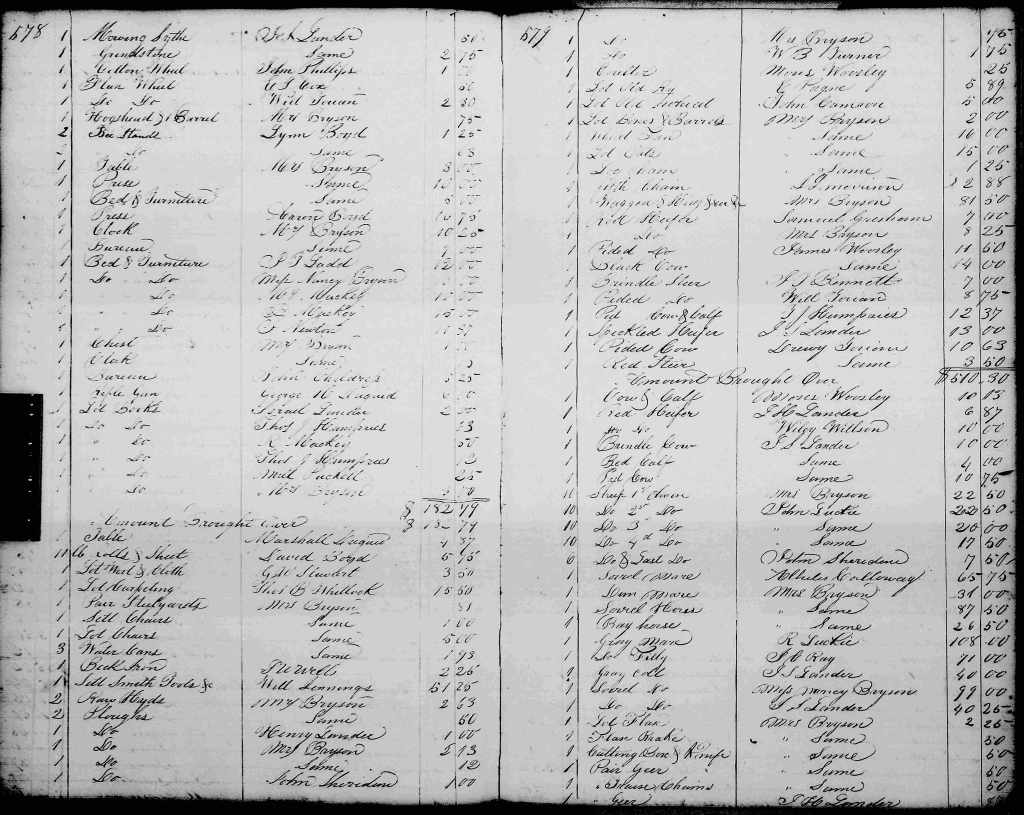 578
1 Mowing Sythe J. S. Lander 50
1 Grindstone Same 2 75
1 Cotton Whul John Phillips 1
1 Flax Whul C S Cox 50
1 Do Do Will Touan 2 50
1 Hogshead & Barrel Mrs Bryson 75
2 Bee Stands Lynn Boyd 1 25
Do Same 63
1 Table Mrs Bryson 3 00
1 Press Same 00
1 Bed & Furniture Same 5 00
1 Press Aaron Boyd 10 75
1 Clock Mrs Bryson 10 25
1 Bureau Same 00
1 Bed & Furniture J S Ladd 12 00
1 Do Do Miss Nancy Brown
1 Do Mackey 00
1 " Do Mackey 15 00
1 " Do Newton 11 37
1 Chest Mrs Bryson 1
1 Clock Same
1 Bureau John Childress 5 25
1 Rifle Gun George H Duguid 6 00
1 Lot Books Israel Lander 2 00
1 Do Do Thos J Humfries 13
1 " Do R Mackey 50
1 " Do Thos J Humfrees 12
1 " Do Puckett 25
1 " Do Mrs Bryson 50
$ 132 79
Amount Brought Over $ 132 79
1 Table Marshall Duguid 4 37
11 Rolls & Sheet David Boyd 5 75
1 Lot & Cloth G W Stewart 3 50
1 Lot Carpeting Thos B Whitlock 15 50
1 Pair Steelyards Mrs Bryson 81
1 Sett Chairs Same 1 00
1 Lot Chairs Same 5 00
3 Water Cans Same 1 93
1 Beck Iron Wells 2 25
1 Sett Smith Tools &c Will Jennings 51 25
2 Raw Hyds Mrs Bryson 2 63
2 Ploughs Same 50
1 Do Henry Lander 1 00
1 Do Mrs Bryson 2 13
1 Do Same 12
1 Do John Sheridan 1 00
579
1 Do Mrs Bryson 75
1 Do W B Turner 1 75
1 Coulter Moses Woosley 25
1 Lot Old C Payne 5 89
1 Lot Old John Cameron 5 00
1 Lot Boxes & Barrels Mrs Bryson 2 00
1 Wheat Fan Same 16 00
1 Lot Oats " Same 15 00
1 Log Chain " Same 1 25
1 Chain S Demovrin 2 88
1 Waggon & Mrs Bryson 81 50
1 Red Heifer Samuel Gresham 7 00
1 Do Mrs Bryson 8 25
1 Pided Do James Woosley 11 50
1 Black Cow Same 14 00
1 Brindle Steer Bennett 7 00
1 Pided Do Will Touan 8 75
1 Cow & Calf T J Humfries 12 37
1 Speckled Heifer J S Lander 13 00
1 Pided Cow Drewy 10 63
1 Red Steer Same 3 50
Amount Brought Over $510.30
1 Cow & Calf Moses Woosley 10 13
1 Red Heifer J H Lander 6 87
1 Do Do Wiley Willson 10 00
1 Brindle Cow J S Lander 10 00
1 Red Calf Same 4 00
1 Red Cow Same 10 75
10 Sheep 1st Choice Mrs Bryson 22 50
10 Do 2nd Do John Luckie 50
10 Do 3 Do " Same 20 00
10 Do 4th Do " Same 17 50
6 Do & Last Do John Sheridan 7 50
1 Sorrel Mare Calloway 65 75
1 Dun Mare Mrs Bryson 31 00
1 Sorrel Horse " Same 87 50
1 Bay horse " Same 26 50
1 Gray Mare R Luckie 108 00
1 Do Filly J C Ray 71 00
1 Gray Colt J S Lander 40 00
1 Sorrel Do Miss Nancy Bryson 99 00
1 Do Do J S Lander 40 25
1 Lot Flax Mrs Bryson 2 25
1 Flax Brake " Same 50
1 Cutting Box & Knife " Same 50
1 Pair Geer " Same 50
1 " Traise Chains " Same 50
1 " Geer J H Lander